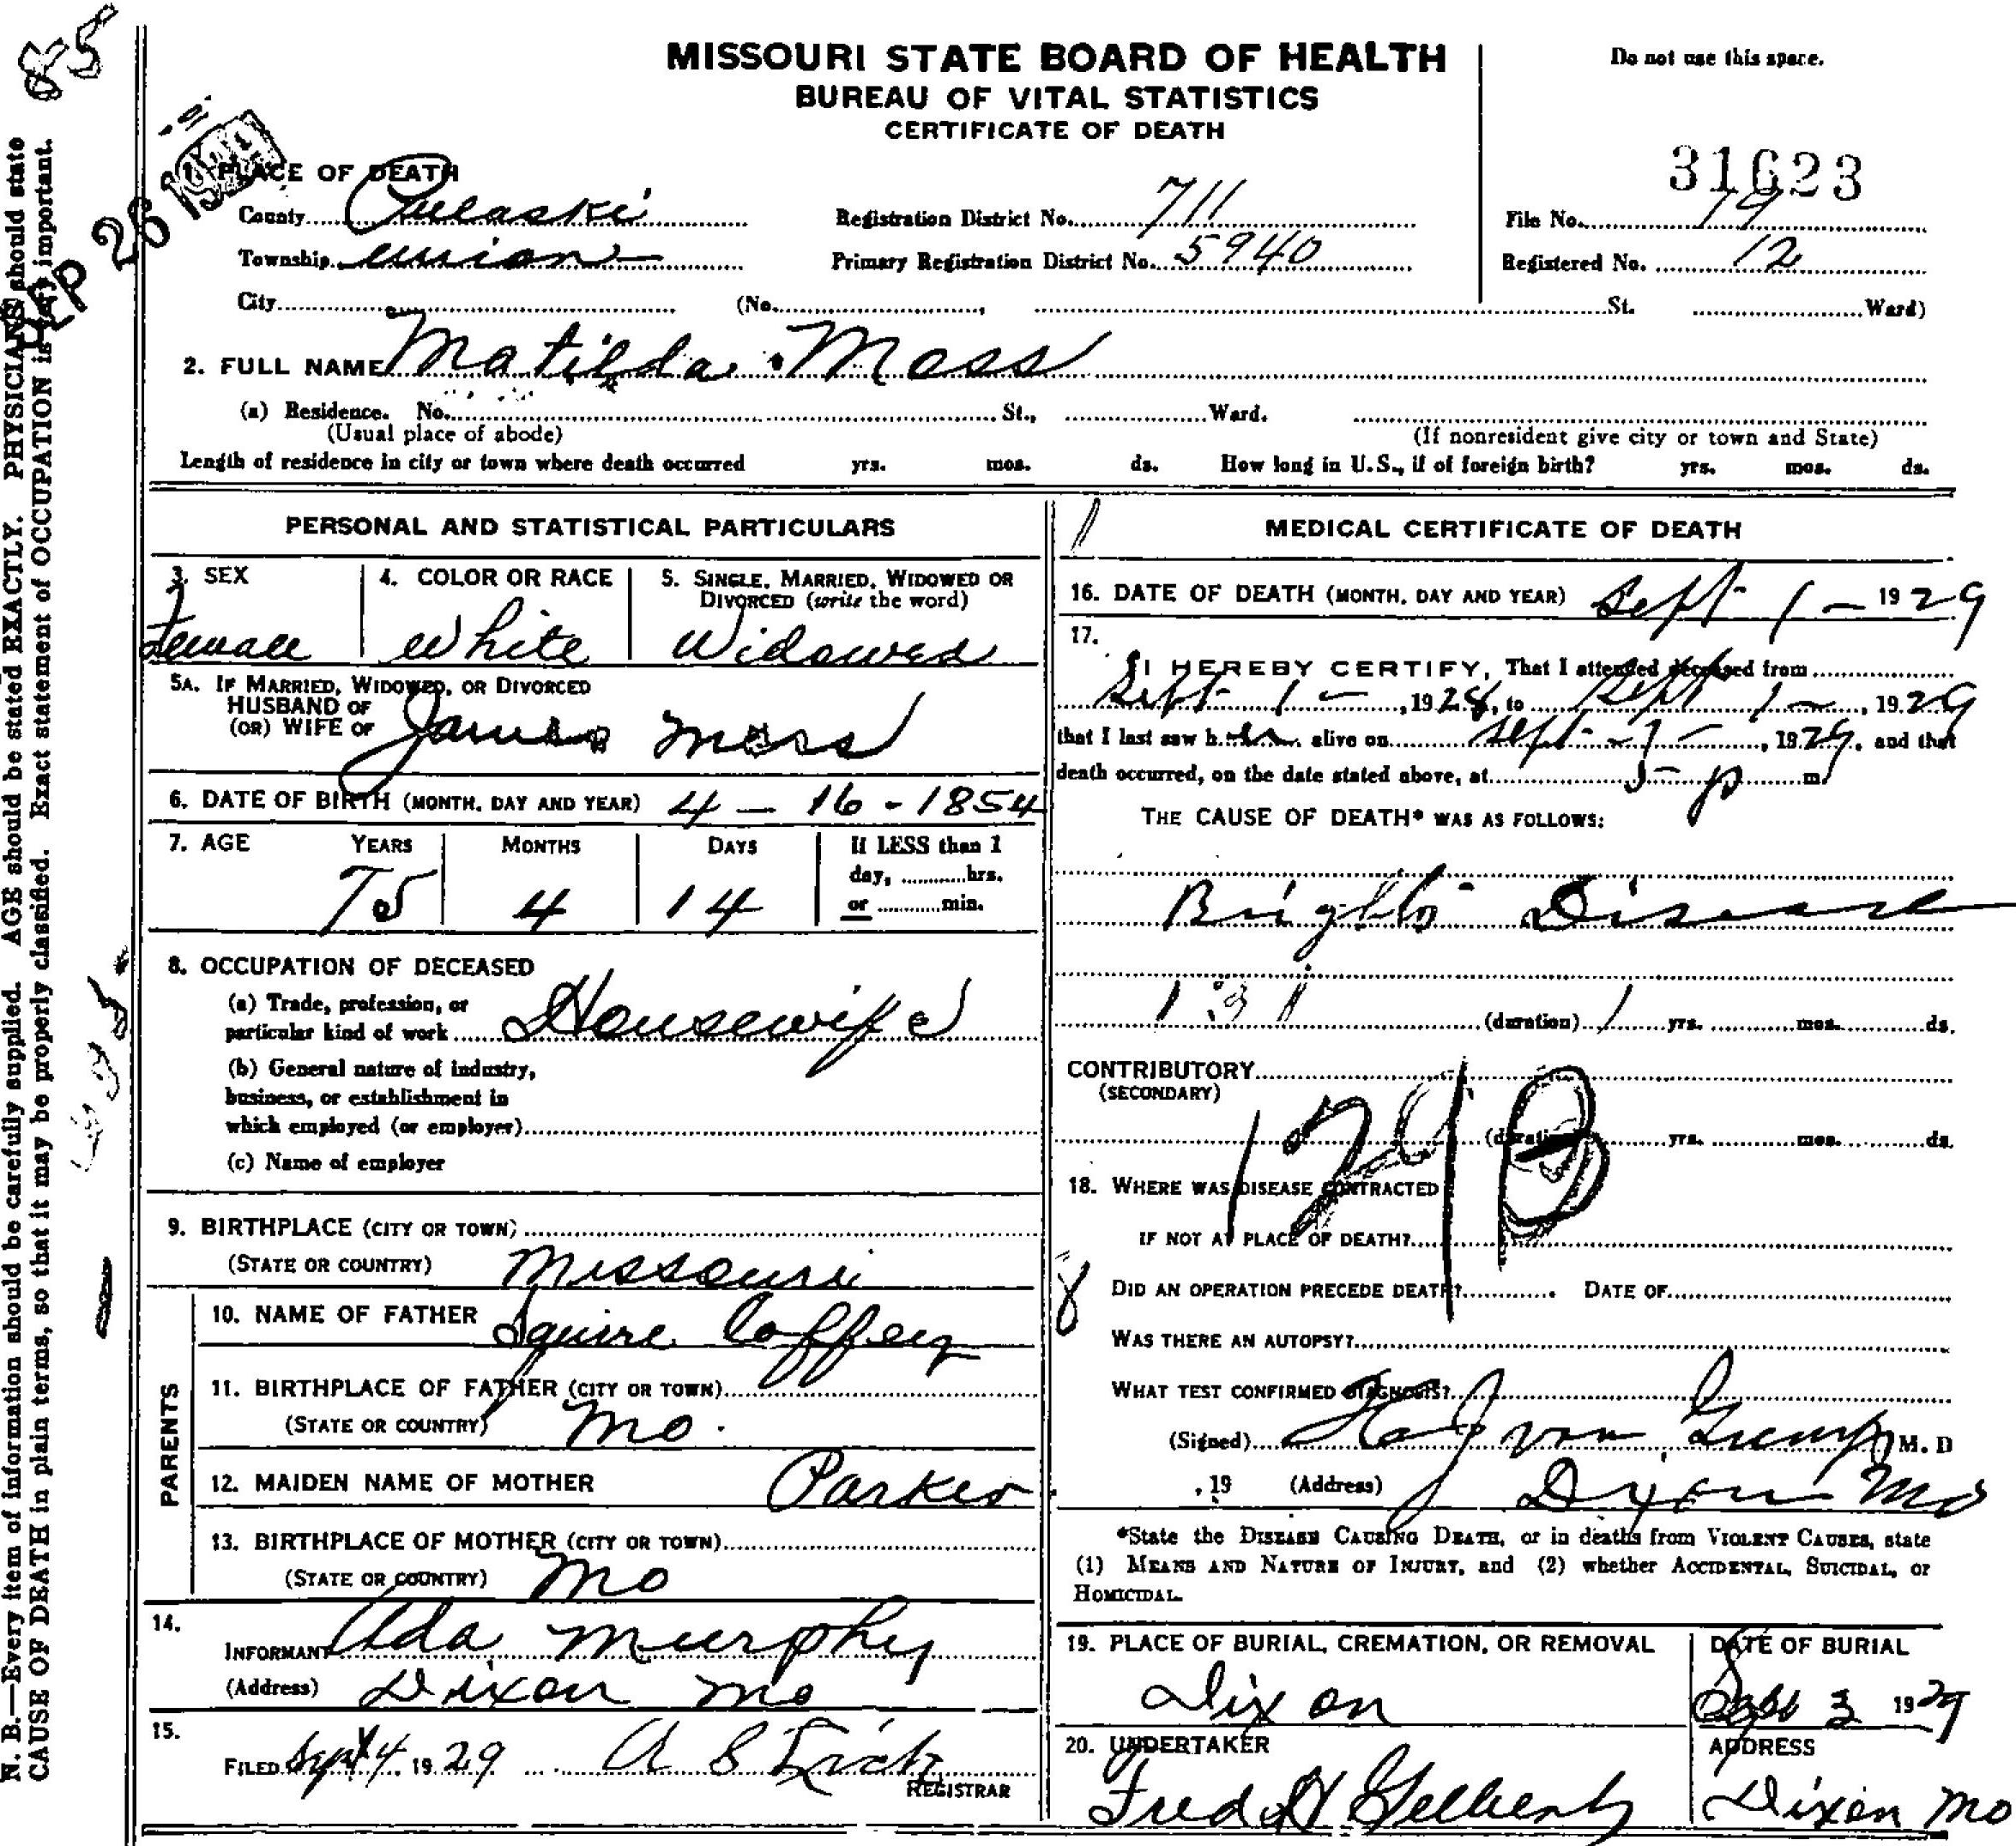 85
MISSOURI STATE BOARD OF HEALTH
BUREAU OF VITAL STATISTICS
CERTIFICATE OF DEATH
Do not use this space.
31623
SEP 26 1929
1. PLACE OF DEATH
County Pulaski Registration District No. 711 File No. 19
Township Union Primary Registration District No. 5940 Registered No. 12
City (No. , St. Ward)
2. FULL NAME Matilda Moss
(a) Residence. No. St., Ward.
(Usual place of abode) (If nonresident give city or town and State)
Length of residence in city or town where death occurred yrs. mos. ds. How long in U.S., if of foreign birth? yrs. mos. ds.
PERSONAL AND STATISTICAL PARTICULARS
3. SEX 4. COLOR OR RACE 5. SINGLE, MARRIED, WIDOWED OR
DIVORCED (write the word)
Female White Widowed
5A. IF MARRIED, WIDOWED, OR DIVORCED
HUSBAND OF
(OR) WIFE OF James Moss
6. DATE OF BIRTH (MONTH, DAY AND YEAR) 4 - 16 - 1854
7. AGE YEARS MONTHS DAYS If LESS than 1
day, hrs.
75 4 14 or min.
8. OCCUPATION OF DECEASED
(a) Trade, profession, or
particular kind of work Housewife
(b) General nature of industry,
business, or establishment in
which employed (or employer)
(c) Name of employer
9. BIRTHPLACE (CITY OR TOWN)
(STATE OR COUNTRY) Missouri
PARENTS
10. NAME OF FATHER Squire Coffey
11. BIRTHPLACE OF FATHER (CITY OR TOWN)
(STATE OR COUNTRY) Mo.
12. MAIDEN NAME OF MOTHER Parker
13. BIRTHPLACE OF MOTHER (CITY OR TOWN)
(STATE OR COUNTRY) Mo
14.
INFORMANT Ada Murphy
(Address) Dixon Mo
15.
FILED Sept 4 1929 A S
REGISTRAR
MEDICAL CERTIFICATE OF DEATH
16. DATE OF DEATH (MONTH, DAY AND YEAR) Sept 1 - 1929
17.
I HEREBY CERTIFY, That I attended deceased from
Sept 1 - , 1928, to Sept 1 - , 1929
that I last saw her alive on Sept - 1 - , 1929, and that
death occurred, on the date stated above, at 5 - p m.
THE CAUSE OF DEATH* WAS AS FOLLOWS:
Brights Disease
131 (duration) 1 yrs. mos. ds.
CONTRIBUTORY
(SECONDARY)
(duration) yrs. mos. ds.
129 B
18. WHERE WAS DISEASE CONTRACTED
IF NOT AT PLACE OF DEATH?
DID AN OPERATION PRECEDE DEATH? DATE OF
WAS THERE AN AUTOPSY?
WHAT TEST CONFIRMED DIAGNOSIS?
(Signed) von M. D
, 19 (Address) Dixon Mo
*State the DISEASE CAUSING DEATH, or in deaths from VIOLENT CAUSES, state
(1) MEANS AND NATURE OF INJURY, and (2) whether ACCIDENTAL, SUICIDAL, or
HOMICIDAL.
19. PLACE OF BURIAL, CREMATION, OR REMOVAL DATE OF BURIAL
Dixon Sept 3 1929
20. UNDERTAKER ADDRESS
Fred H Gelbert Dixon Mo
N. B.—Every item of information should be carefully supplied. AGE should be stated EXACTLY. PHYSICIANS should state
CAUSE OF DEATH in plain terms, so that it may be properly classified. Exact statement of OCCUPATION is very important.